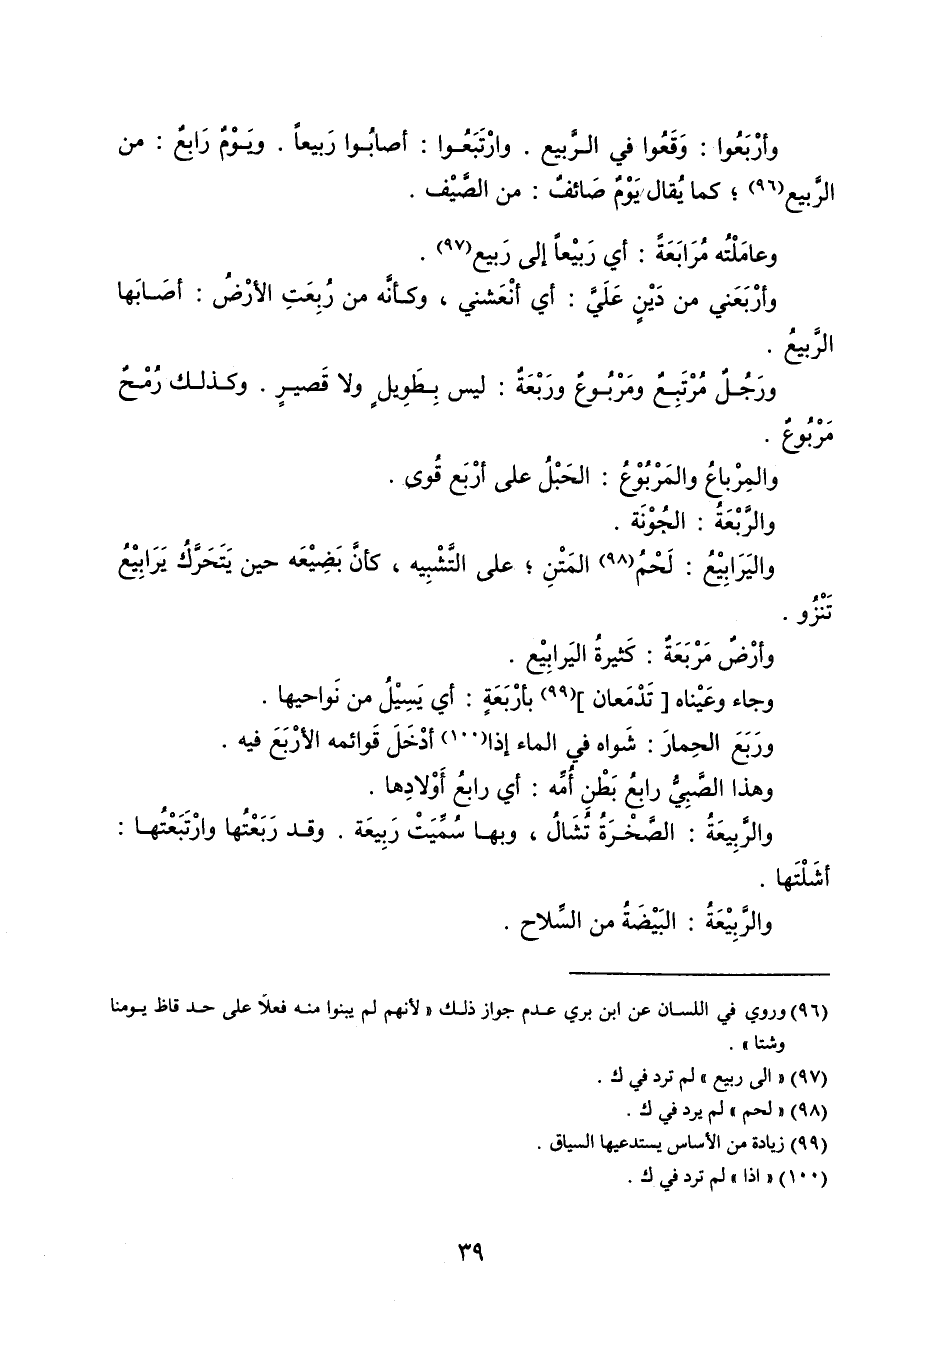 وأَرْبَعُوا : وَقَعُوا في الـرَّبيع . وارْتَبَعُـوا : أصابُـوا رَبيعاً . ويَـوْمٌ رَابعٌ : من
الرَّبيع(٩٦) ؛ كما يُقال يَوْمٌ صَائفٌ : من الصَّيْف .
وعامَلْتُه مُرَابَعَةً : أي رَبيْعاً إلى رَبيع(٩٧) .
وأَرْبَعَني من دَيْنٍ عَلَيَّ : أي أَنْعَشني ، وكـأنَّه من رُبِعَتِ الأرْضُ : أصَـابَها
الرَّبيعُ .
ورَجُـلٌ مُرْتَبِـعٌ ومَرْبُـوعٌ ورَبْعَةٌ : ليس بِـطَوِيلٍ ولا قَصيـرٍ . وكـذلـك رُمْـحٌ
مَرْبُوعٌ .
والمِرْباعُ والمَرْبُوْعُ : الحَبْلُ على أَرْبَع قُوى .
والرَّبْعَةُ : الجُوْنَة .
واليَرَابِيْعُ : لَحْمُ(٩٨) المَتْنِ ؛ على التَّشْبِيه ، كأنَّ بَضِيْعَه حين يَتَحَرَّكُ يَرَابِيْعُ
تَنْزُو .
وأَرْضٌ مَرْبَعَةٌ : كَثيرةُ اليَرابِيْع .
وجاء وعَيْناه [ تَدْمَعان ](٩٩) بأَرْبَعَةٍ : أي يَسِيْلُ من نَواحيها .
ورَبَعَ الحِمارَ : شَواه في الماء إذا(١٠٠) أَدْخَلَ قَوائمه الأَرْبَعَ فيه .
وهذا الصَّبِيُّ رابعُ بَطْنِ أُمِّه : أي رابعُ أَوْلادِها .
والرَّبِيعَةُ : الصَّخْـرَةُ تُشَالُ ، وبهـا سُمِّيَتْ رَبِيعَة . وقـد رَبَعْتُها وارْتَبَعْتُهـا :
أَشَلْتَها .
والرَّبِيْعَةُ : البَيْضَةُ من السِّلاح .
(٩٦) وروي في اللسـان عن ابن بري عـدم جواز ذلـك « لأنهم لم يبنوا منـه فعلًا على حـد قاظ يـومنا
وشتا » .
(٩٧) « الى ربيع » لم ترد في ك .
(٩٨) « لحم » لم يرد في ك .
(٩٩) زيادة من الأساس يستدعيها السياق .
(١٠٠) « اذا » لم ترد في ك .
٣٩